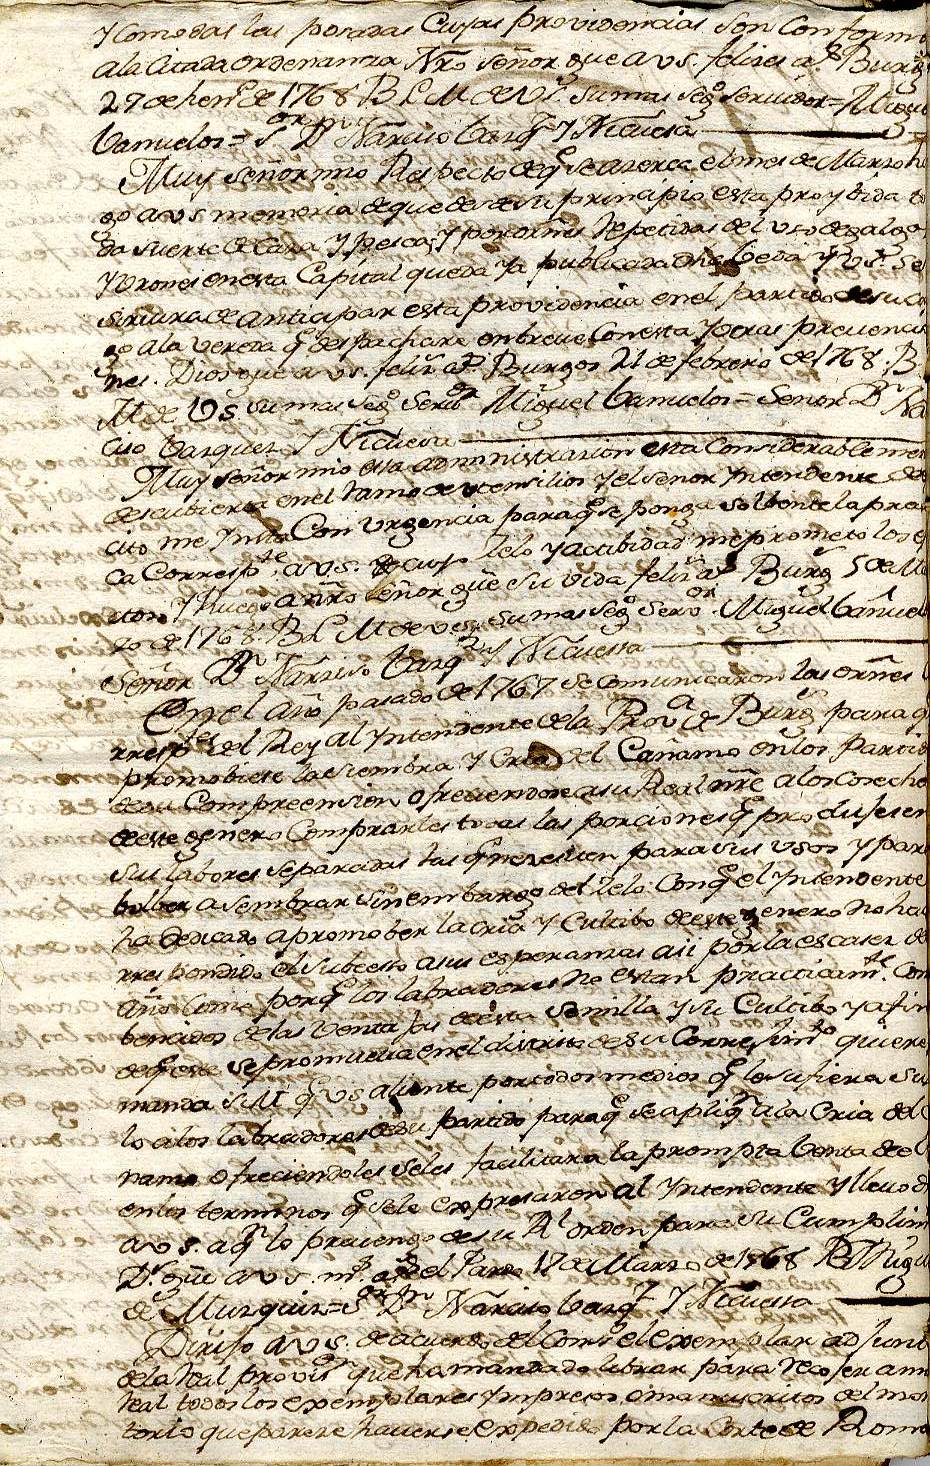 y Comodas las posadas Cuyas providencias son Conforme
ala Citada ordenanza Nro señor gue a vs. felizes as. Burgs
27 de hen.o de 1768 B L M de Vs. su mas seg.o servidor = Migue
bañuelos = s.or D.n Narciso bazq.z y Nicuesa
Muy señor mio Respecto de q.e se azerca el mes de Marzo h
go a vs memoria de que desde su principio esta proybida to
da suerte de Caza y Pesca, y por ordenes Repetidas del uso de galgos
y urones en esta Capital queda ya publicada dha beda y Vs. se
servira de anticipar esta providencia en el partido de su ca
go ala vereda q.e despachare en breve Con esta y otras prevencio
nes. Dios gue a vs. feliz as. Burgos 21 de febrero de 1768. B
M de Vs su mas seg.o serv.or Miguel bañuelos = Señor D.n Na
ciso bazquez y Nicuesa
Muy señor mio esta administrazion esta Considerablemen
descubierta en el Ramo de utensilios y el señor Yntendente de
cito me Insta Con urgencia para q.e se ponga solbente la prea
ca Corresp.te a vs. de cuyo zelo y actibidad me prometo los ef
ctos y Ruego a nro señor gue su vida feliz as Burgs 5 de Ma
zo de 1768. B L M de vs. su mas seg.o serv.or Miguel bañuel
Señor D.n Narziso bazq.z y Nicuesa
En el año pasado de 1767 se comunicaron las ornes
rresp.tes del Rey al Yntendente de la Prov.a de Burgs para q
promobiese la siembra y Cria del Cañamo en los Partid
de su Compreension ofreciendose a su Real nre alos Coseche
de este genero Comprarles todas las porciones q.e produjesen
sus labores separadas las q.e nezesiten para sus usos y par
bolber a sembrar sin embargo del zelo Con q.e el Yntendente
ha dedicado a promober la cria y Cultibo de este genero no ha
rrespondido el subcesso a sus esperanzas asi por la escasez de
año Como porq.e los labradores no estan practicam.te Con
bencidos de las ventajas de esta semilla y su Cultibo y a fin
de q.e este se promueva en el distrito de su Correjim.to quiere
manda S M q.e vs aliente por todos medios q.e le sufiera su
lo alos labradores de su partido para q.e se apliq.n ala Cria del C
ñamo ofreciendoles se les facilitara la prompta benta de el
en los terminos q.e se le expresaron al Yntendente y llevo d
a vs. aq.n lo prevengo de su R.l orden para su Cumplim
D.s gue a vs. m.s a.s el Pardo 12 de Marzo de 1768 D.n Migu
de Muzquiz = S.or D.n Narciso bazq.z y Nicuessa
Dirijo a vs. de acuerdo del Cons.o el exemplar adjunt
de la Real provis.on que ha mandado librar para recojer a mn
Real todos los exemplares Ympresos o manuscritos del mon
torio que pareze haverse expedido por la Corte de Roma